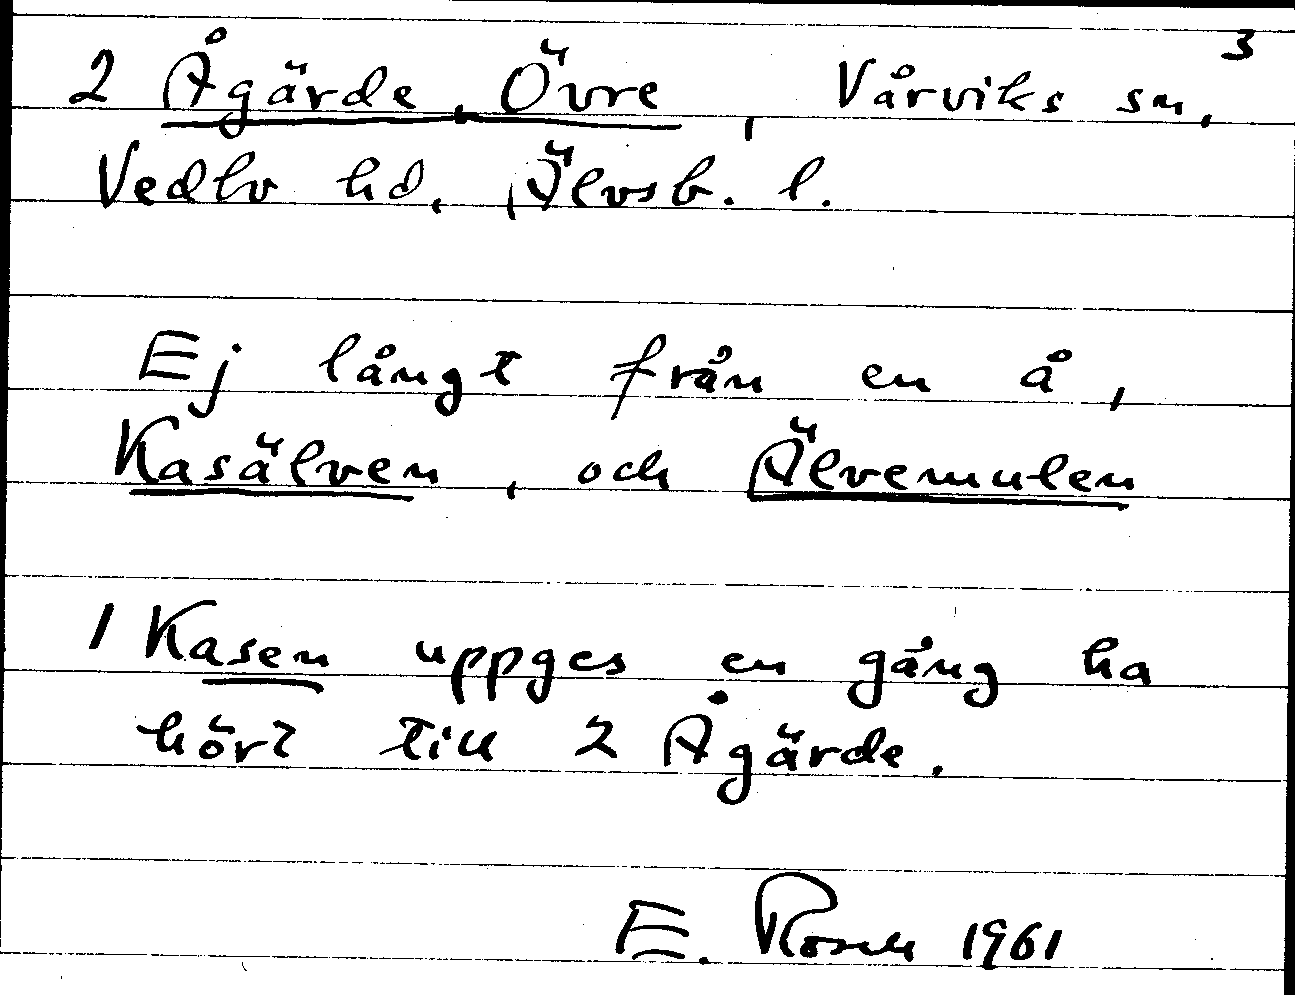 3
2 Ågärde, Övre, Vårviks sn,
Vedbo hd, Älvsb. l.
Ej långt från en å,
Kasälven, och Älvemulen
1 Kasen uppges en gång ha
hört till 2 Ågärde.
E. Rosell 1961